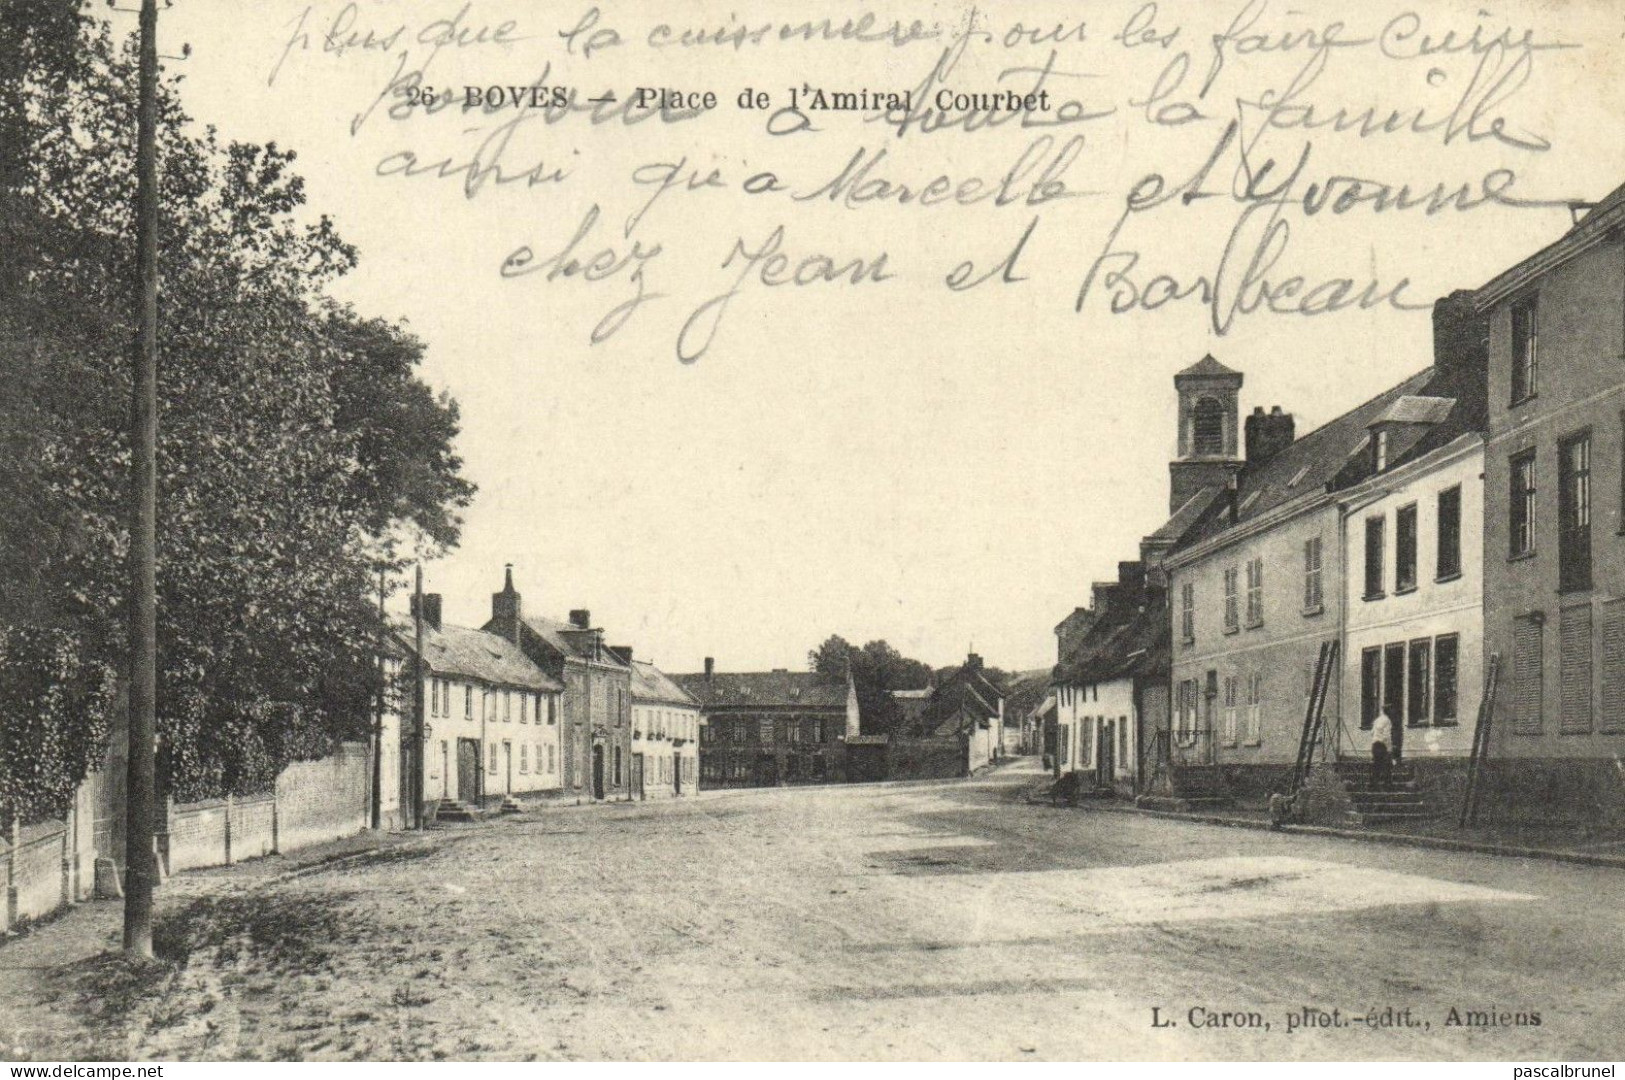 plus que la cuisinière pour les faire cuire
26 BOVES — Place de l'Amiral Courbet
Bonjour à toute la famille
ainsi qu'a Marcelle et Yvonne
chez Jean et Barbeau
L. Caron, phot.-édit., Amiens
delcampe.net
pascalbrunel